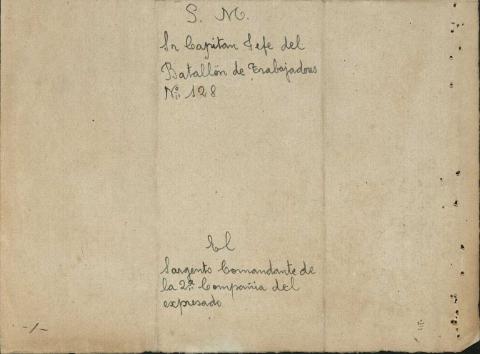 S. M.
Sr Capitan Jefe del
Batallón de Trabajadores
Nº 128
El
Sargento Comandante de
la 2ª Compañia del
expresado
-/-